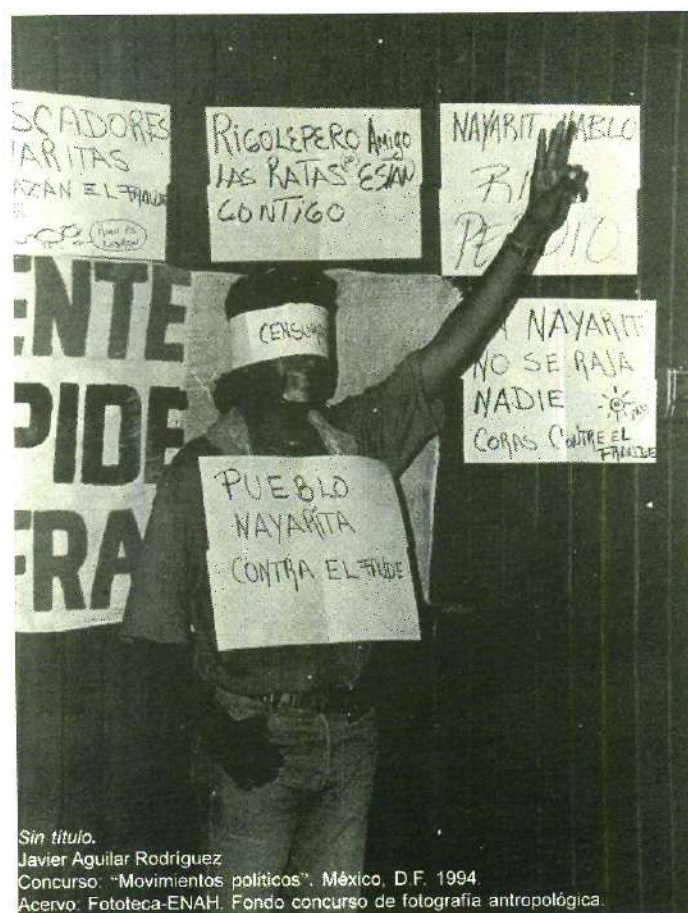 SCADORES
ARITAS
AZAN EL FRAUDE
RIGOLEPERO Amigo
LAS RATAS ESTAN
CONTIGO
NAYARIT HABLO
RI
PERDIO
ENTE
PIDE
FRA
CENSURA
NAYARIT
NO SE RAJA
NADIE
CORAS CONTRE EL
FRAUDE
PUEBLO
NAYARITA
CONTRA EL FRUDE
Sin título.
Javier Aguilar Rodríguez
Concurso: "Movimientos políticos". México, D.F. 1994.
Acervo: Fototeca-ENAH. Fondo concurso de fotografía antropológica.